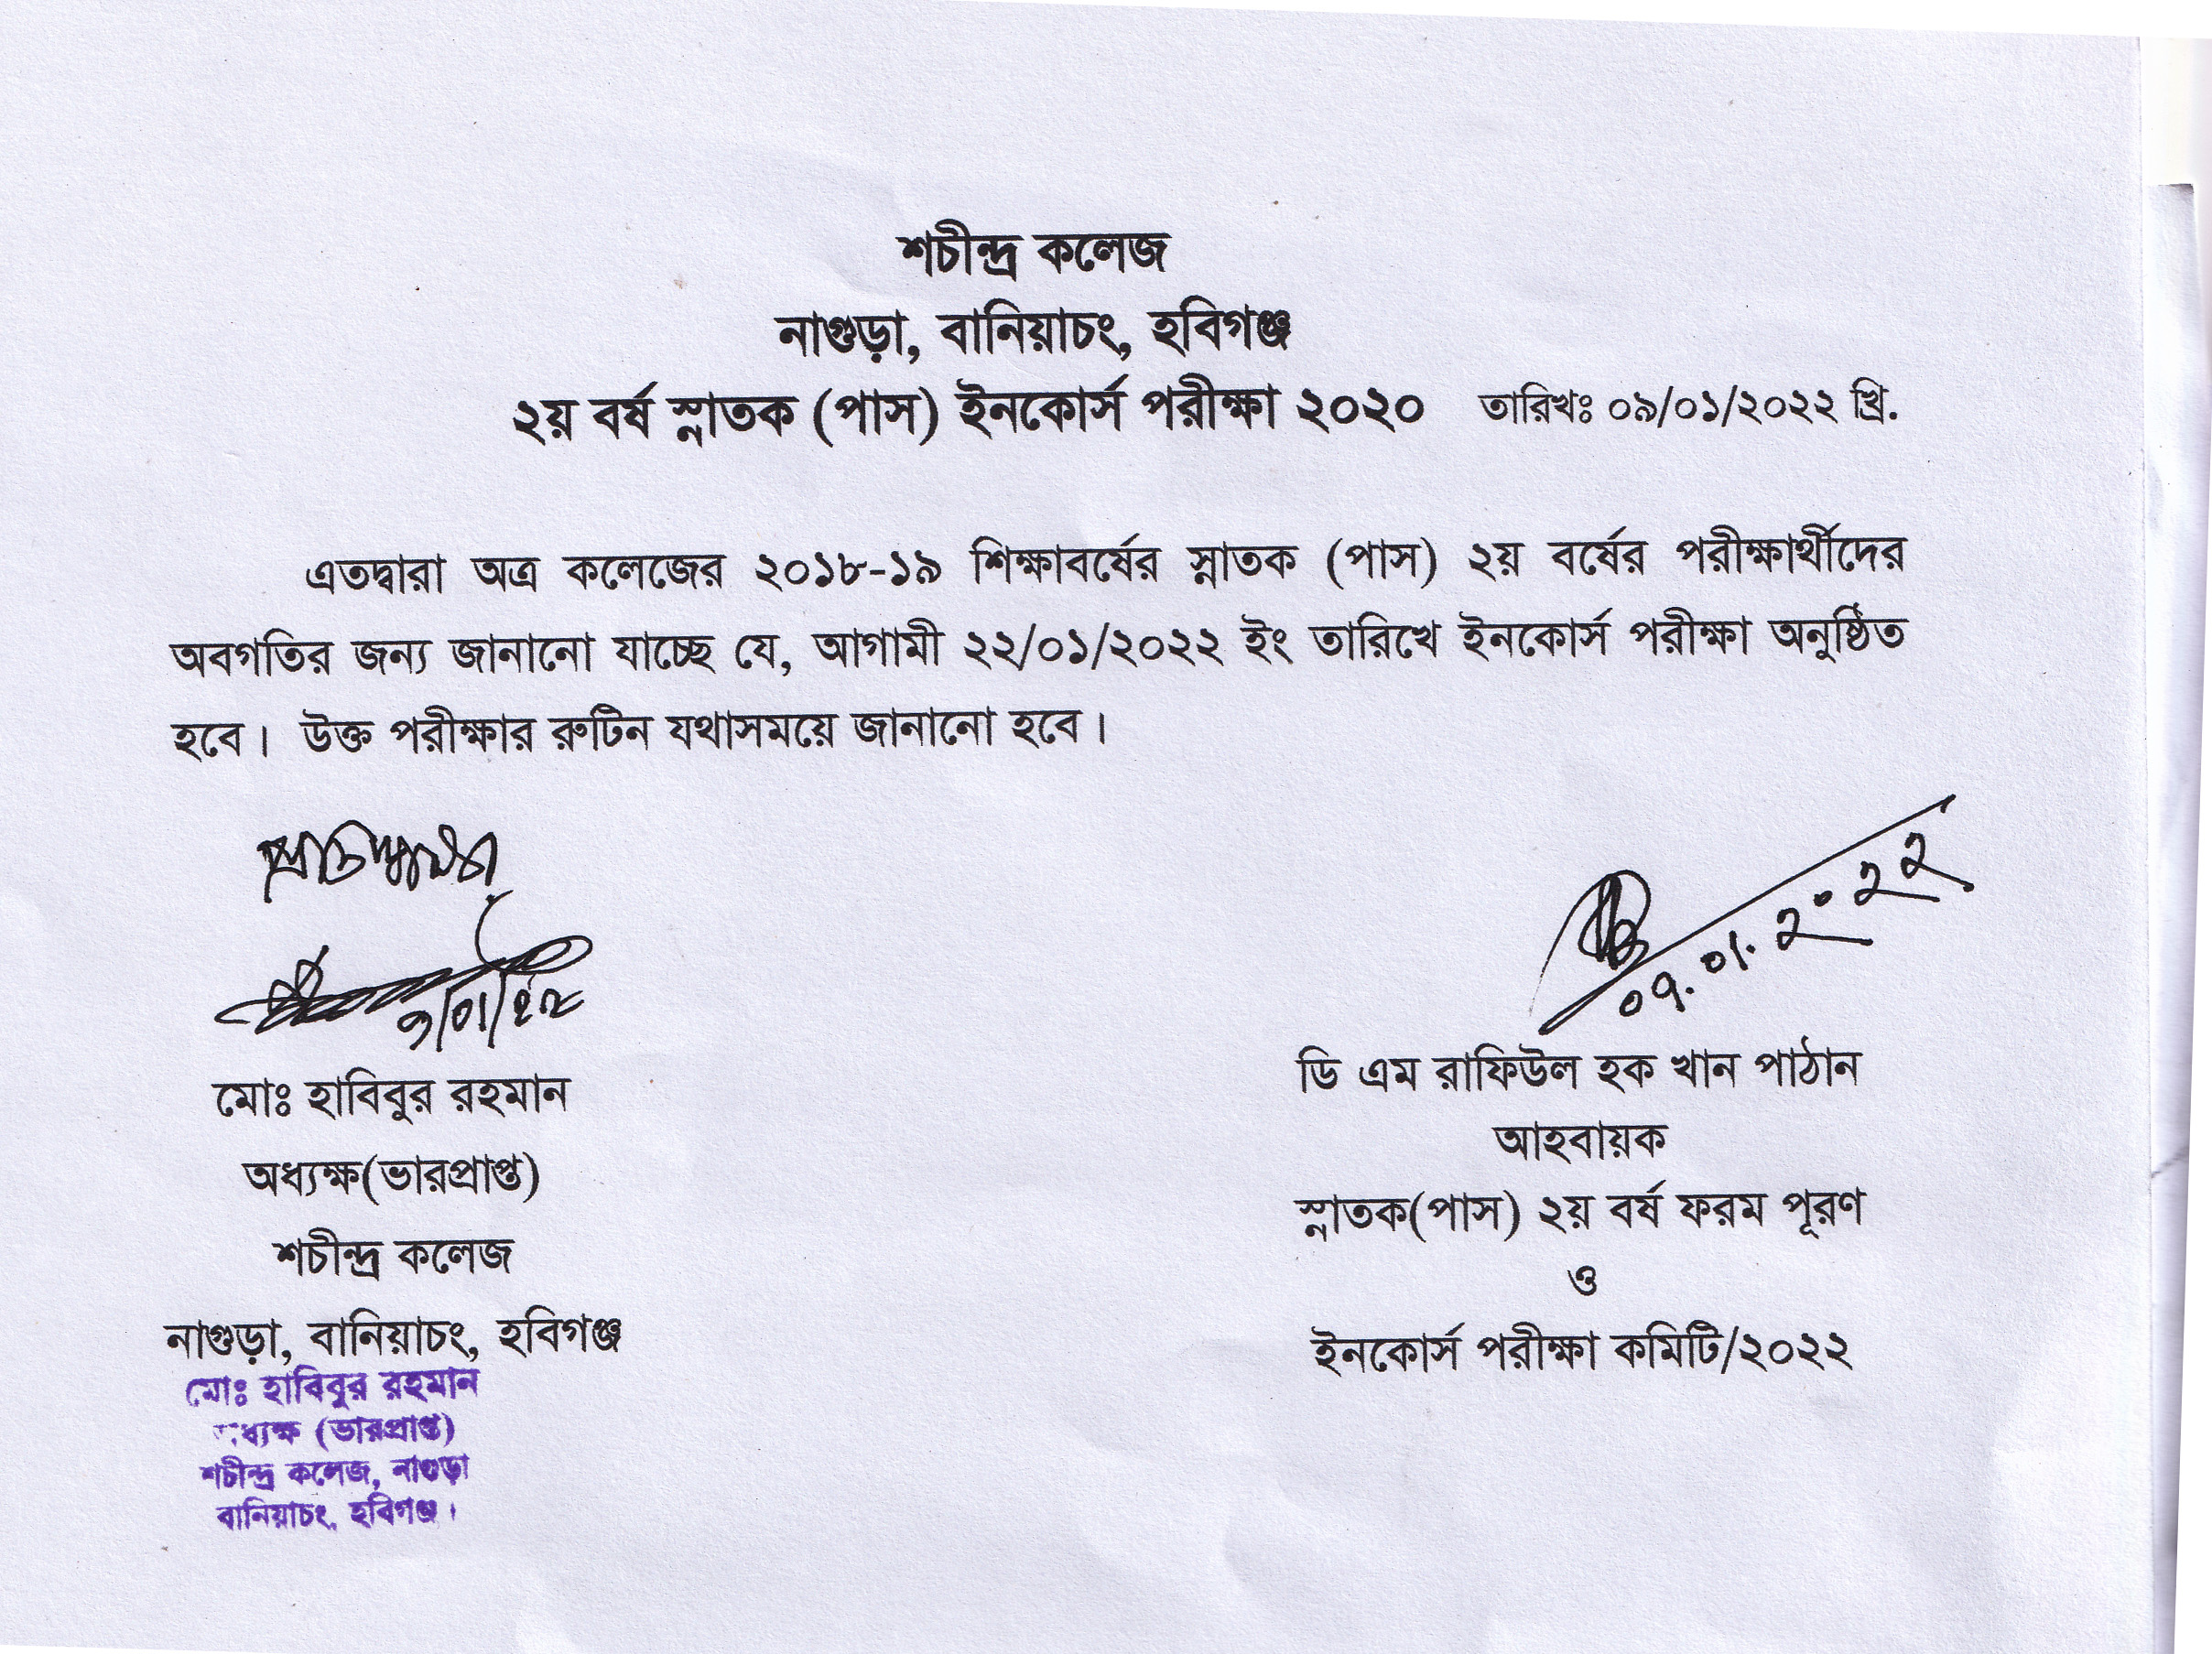 শচীন্দ্র কলেজ
নাগুড়া, বানিয়াচং, হবিগঞ্জ
২য় বর্ষ স্নাতক (পাস) ইনকোর্স পরীক্ষা ২০২০ তারিখঃ ০৯/০১/২০২২ খ্রি.
এতদ্বারা অত্র কলেজের ২০১৮-১৯ শিক্ষাবর্ষের স্নাতক (পাস) ২য় বর্ষের পরীক্ষার্থীদের
অবগতির জন্য জানানো যাচ্ছে যে, আগামী ২২/০১/২০২২ ইং তারিখে ইনকোর্স পরীক্ষা অনুষ্ঠিত
হবে। উক্ত পরীক্ষার রুটিন যথাসময়ে জানানো হবে।
মোঃ হাবিবুর রহমান
অধ্যক্ষ(ভারপ্রাপ্ত)
শচীন্দ্র কলেজ
নাগুড়া, বানিয়াচং, হবিগঞ্জ
মোঃ হাবিবুর রহমান
অধ্যক্ষ (ভারপ্রাপ্ত)
শচীন্দ্র কলেজ, নাগুড়া
বানিয়াচং, হবিগঞ্জ।
০৯.০১.২০২২
ডি এম রাফিউল হক খান পাঠান
আহবায়ক
স্নাতক(পাস) ২য় বর্ষ ফরম পূরণ
ও
ইনকোর্স পরীক্ষা কমিটি/২০২২